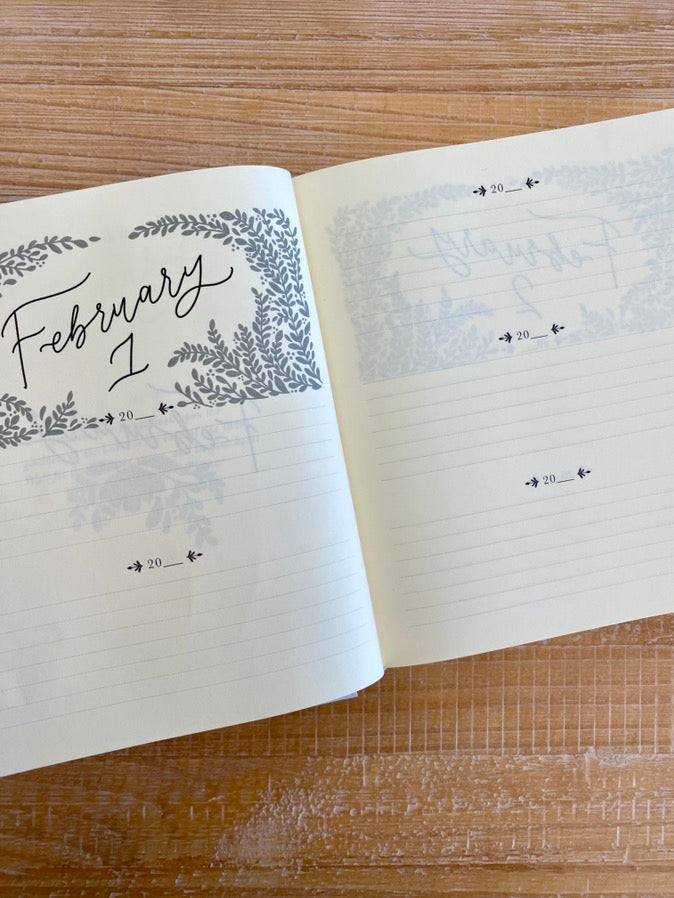 February
1
20__
20__
20__
20__
20__